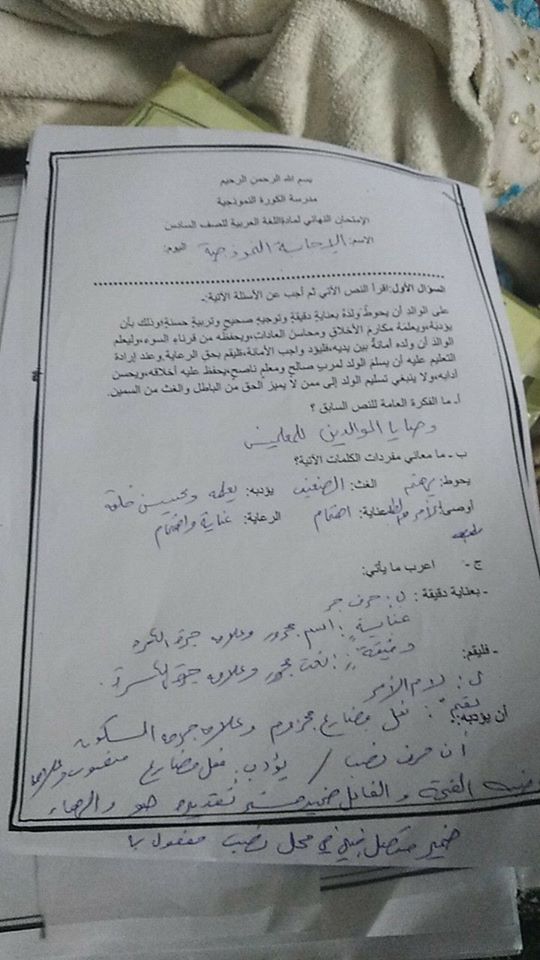 بسم الله الرحمن الرحيم
مدرسة الكورة النموذجية
الإمتحان النهائي لمادةاللغة العربية للصف السادس
الاسم: الإجابة النموذجية اليوم:
السؤال الأول:اقرأ النص الآتي ثم أجب عن الأسئلة الآتية:-
على الوالد أن يحوط ولدهُ بعنايةٍ دقيقة وتوجيهٍ صحيحٍ وتربيةٍ حسنةٍ؛وذلك بأن
يؤدبهُ،ويعلمهُ مكارمَ الأخلاق ومحاسن العادات،ويحفظه من قرناء السوء،وليعلم
الوالدُ أن ولده أمانةٌ بين يديه،فليؤد واجب الأمانة،فليقم بحق الرعاية،وعند إرادة
التعليم عليه أن يسلم الولد لمربٍ صالحٍ ومعلمٍ ناصحٍ،يحفظ عليه أخلاقه،ويحسن
آدابه،ولا ينبغي تسليم الولد إلى ممن لا يميز الحق من الباطل والغث من السمين.
أ- ما الفكرة العامة للنص السابق ؟
وصايا الوالدين للمعلمين
ب - ما معاني مفردات الكلمات الآتية؟
يحوط: يهتم الغث: الضعيف يؤدبه: يعلمه وتحسين خلقه
أوصى: العناية: اهتمام الرعاية: عناية واهتمام
ج - اعرب ما يأتي:
- بعناية دقيقة : ب: حرف جر
عنايةٍ: اسم مجرور وعلامة جره الكسرة
دقيقةٍ: نعت مجرور وعلامة جره الكسرة.
- فليقم:
ل: لام الأمر
يقم: فعل مضارع مجزوم وعلامة جزمه السكون
أن يؤدبه:
أن حرف نصب / يؤدب: فعل مضارع منصوب وعلامة
نصبه الفتحة والفاعل ضمير مستتر تقديره هو والهاء
ضمير متصل مبني في محل نصب مفعول به